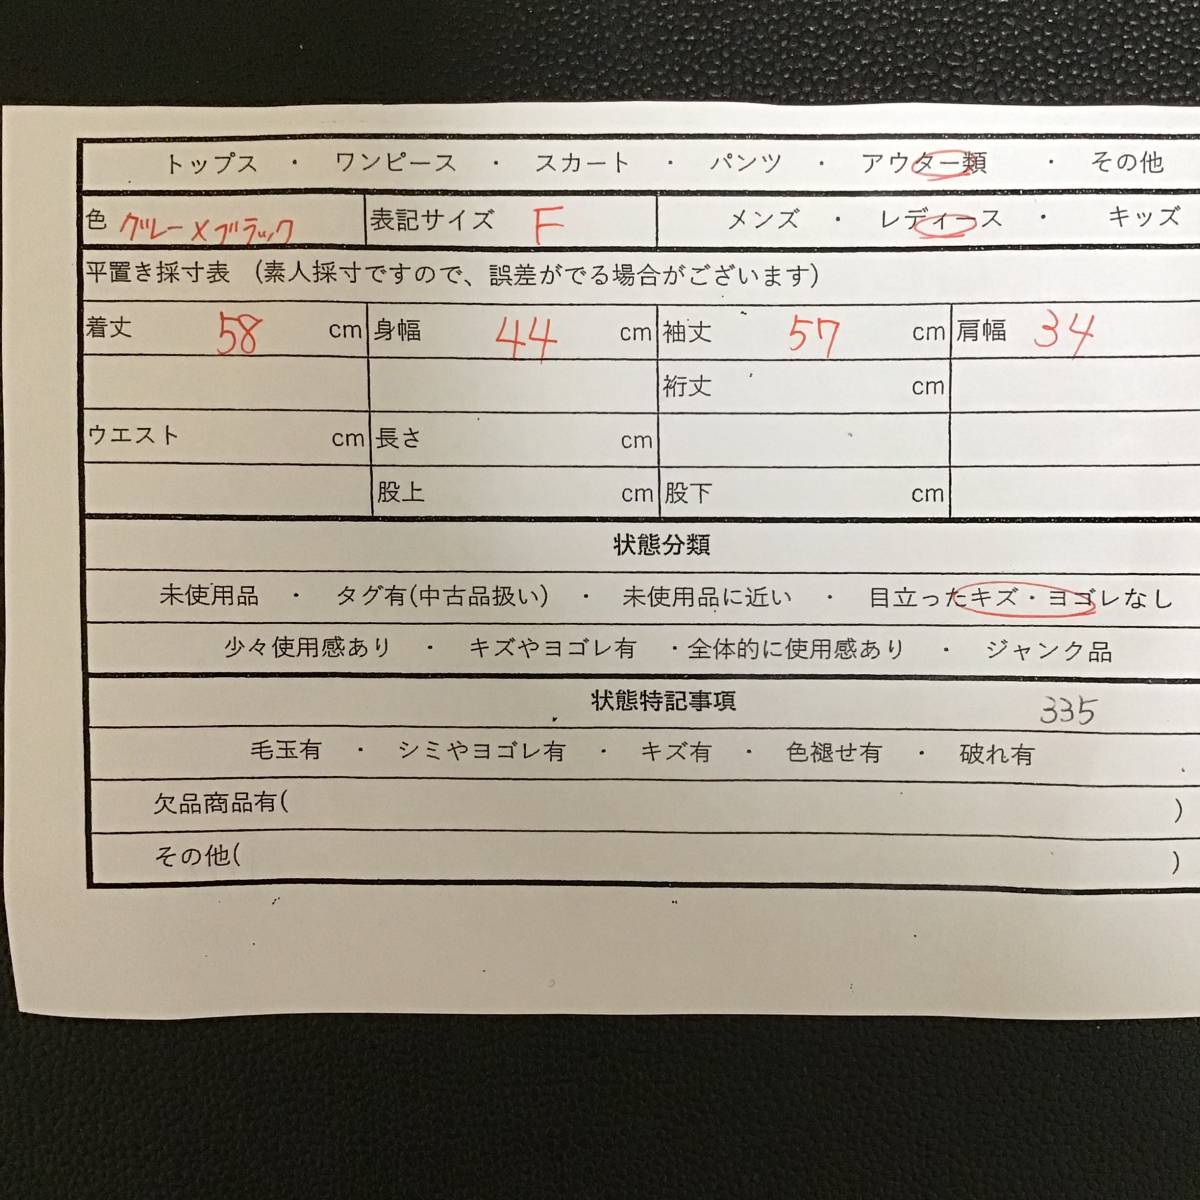 トップス ・ ワンピース ・ スカート ・ パンツ ・ アウター類 ・ その他
色 グレー×ブラック 表記サイズ F メンズ ・ レディース ・ キッズ
平置き採寸表 (素人採寸ですので、誤差がでる場合がございます)
着丈 58 cm 身幅 44 cm 袖丈 57 cm 肩幅 34
裄丈 cm
ウエスト cm 長さ cm
股上 cm 股下 cm
状態分類
未使用品 ・ タグ有(中古品扱い) ・ 未使用品に近い ・ 目立ったキズ・ヨゴレなし
少々使用感あり ・ キズやヨゴレ有 ・全体的に使用感あり ・ ジャンク品
状態特記事項 335
毛玉有 ・ シミやヨゴレ有 ・ キズ有 ・ 色褪せ有 ・ 破れ有
欠品商品有( )
その他( )